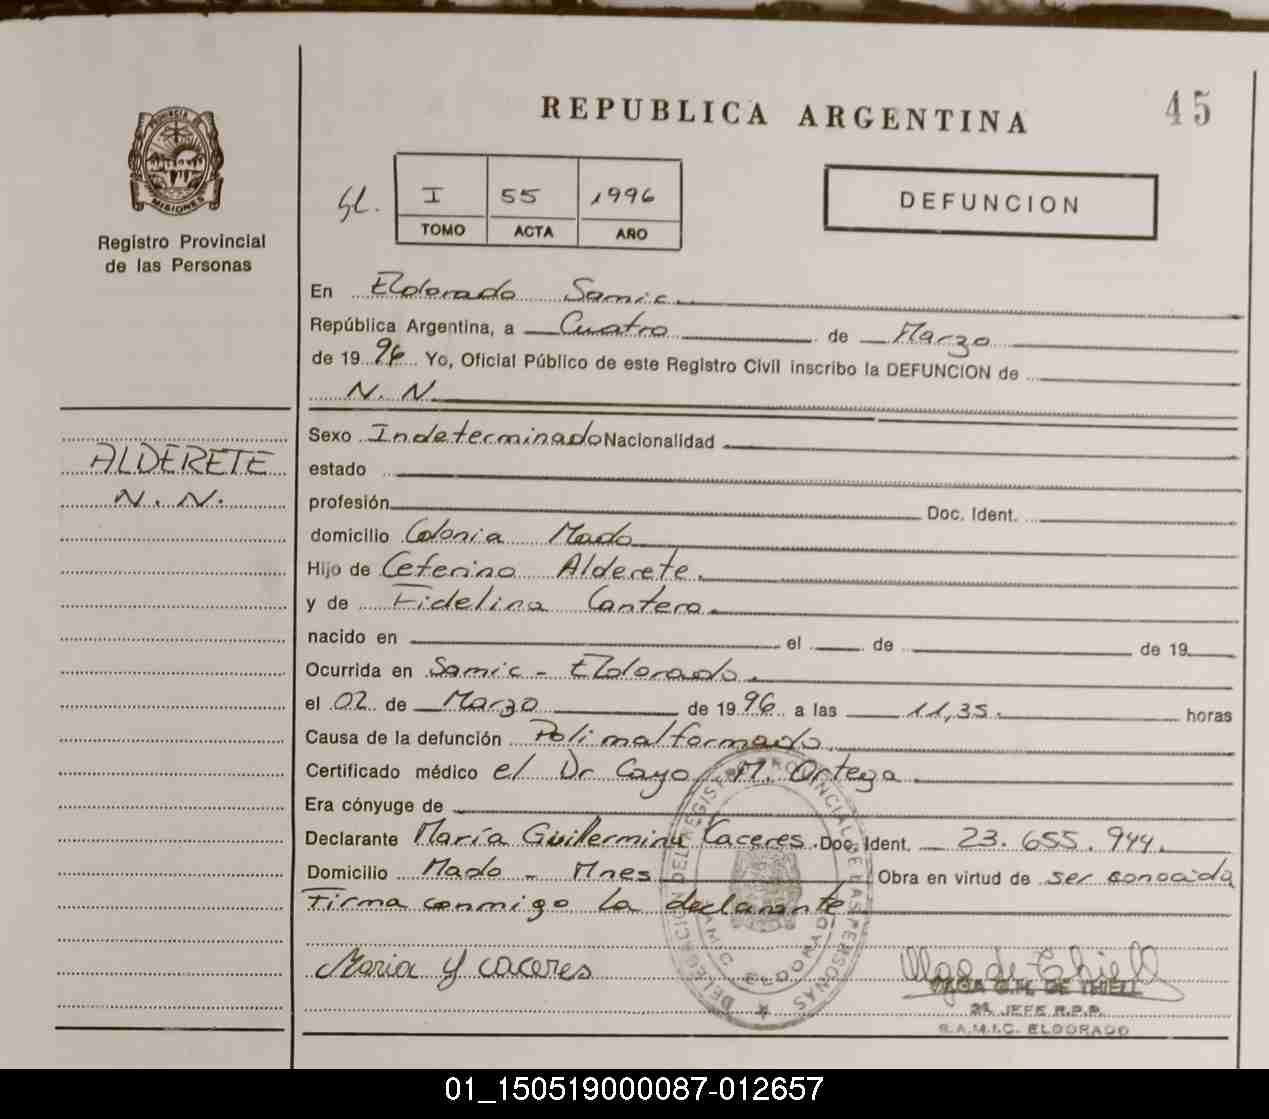 REPUBLICA ARGENTINA
45
PROVINCIA DE
MISIONES
Registro Provincial
de las Personas
I 55 1996
TOMO ACTA AÑO
DEFUNCION
En Eldorado Samic
República Argentina, a Cuatro de Marzo
de 19 96 Yo, Oficial Público de este Registro Civil inscribo la DEFUNCION de
N. N.
Sexo Indeterminado Nacionalidad
ALDERETE
N. N.
estado
profesión Doc. Ident.
domicilio Colonia Mado
Hijo de Ceferino Alderete.
y de Fidelina Cantero.
nacido en el de de 19
Ocurrida en Samic - Eldorado.
el 02 de Marzo de 19 96 a las 11,35. horas
Causa de la defunción Polimalformado
Certificado médico el Dr Cayo M. Ortega
Era cónyuge de
Declarante María Guillermina Caceres. Doc. Ident. 23.655.944.
Domicilio Mado - Mnes Obra en virtud de ser conocida
Firma conmigo la declarante
Maria y caceres
Olga de Thiell
OLGA G.M. DE THIELL
2a. JEFE R.P.P.
S.A.M.I.C. ELDORADO
DELEGACION DEL REGISTRO PROVINCIAL DE LAS PERSONAS
ELDORADO
01_150519000087-012657